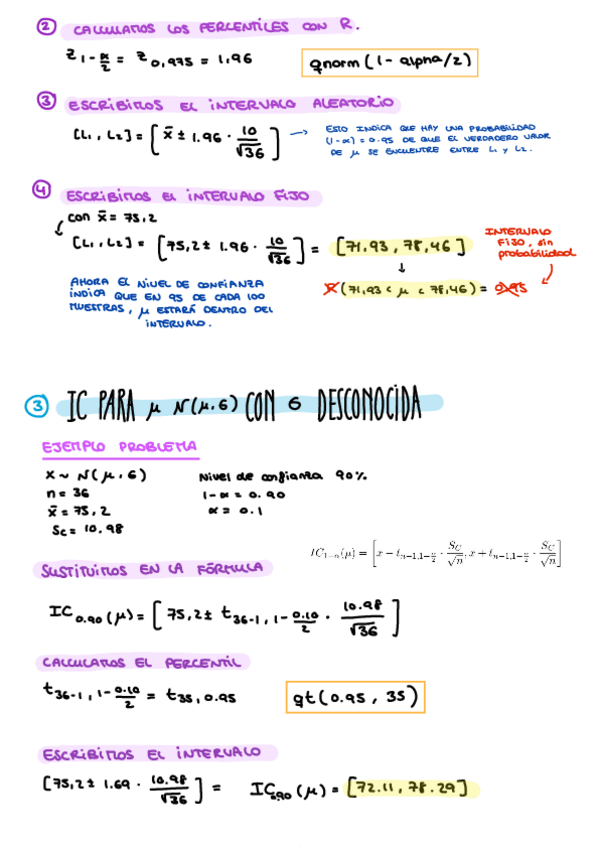 ② CALCULAMOS LOS PERCENTILES CON R.
z_{1-α/2} = z_{0,975} = 1,96
qnorm(1- alpha/2)
③ ESCRIBIMOS EL INTERVALO ALEATORIO
[L₁, L₂] = [x̄ ± 1.96 · 10/√36] →
ESTO INDICA QUE HAY UNA PROBABILIDAD
(1-α) = 0.95 DE QUE EL VERDADERO VALOR
DE μ SE ENCUENTRE ENTRE L₁ y L₂.
④ ESCRIBIMOS EL INTERVALO FIJO
con x̄ = 75,2
[L₁, L₂] = [75,2 ± 1.96 · 10/√36] = [71,93, 78,46]
INTERVALO
FIJO, sin
probabilidad
P(71,93 < μ < 78,46) = 0.95
AHORA EL NIVEL DE CONFIANZA
INDICA QUE EN 95 DE CADA 100
MUESTRAS, μ ESTARÁ DENTRO DEL
INTERVALO.
③ IC PARA μ N(μ,σ) CON σ DESCONOCIDA
EJEMPLO PROBLEMA
X ~ N(μ, σ)
n = 36
x̄ = 75,2
Sc = 10.98
Nivel de confianza 90%
1-α = 0.90
α = 0.1
IC_{1-α}(μ) = [x - t_{n-1,1-α/2} · S_C/√n, x + t_{n-1,1-α/2} · S_C/√n]
SUSTITUIMOS EN LA FÓRMULA
IC_{0.90}(μ) = [75,2 ± t_{36-1, 1-0.10/2} · 10.98/√36]
CALCULAMOS EL PERCENTIL
t_{36-1, 1-0.10/2} = t_{35, 0.95}
qt(0.95, 35)
ESCRIBIMOS EL INTERVALO
[75,2 ± 1.69 · 10.98/√36] = IC_{0.90}(μ) = [72.11, 78.29]